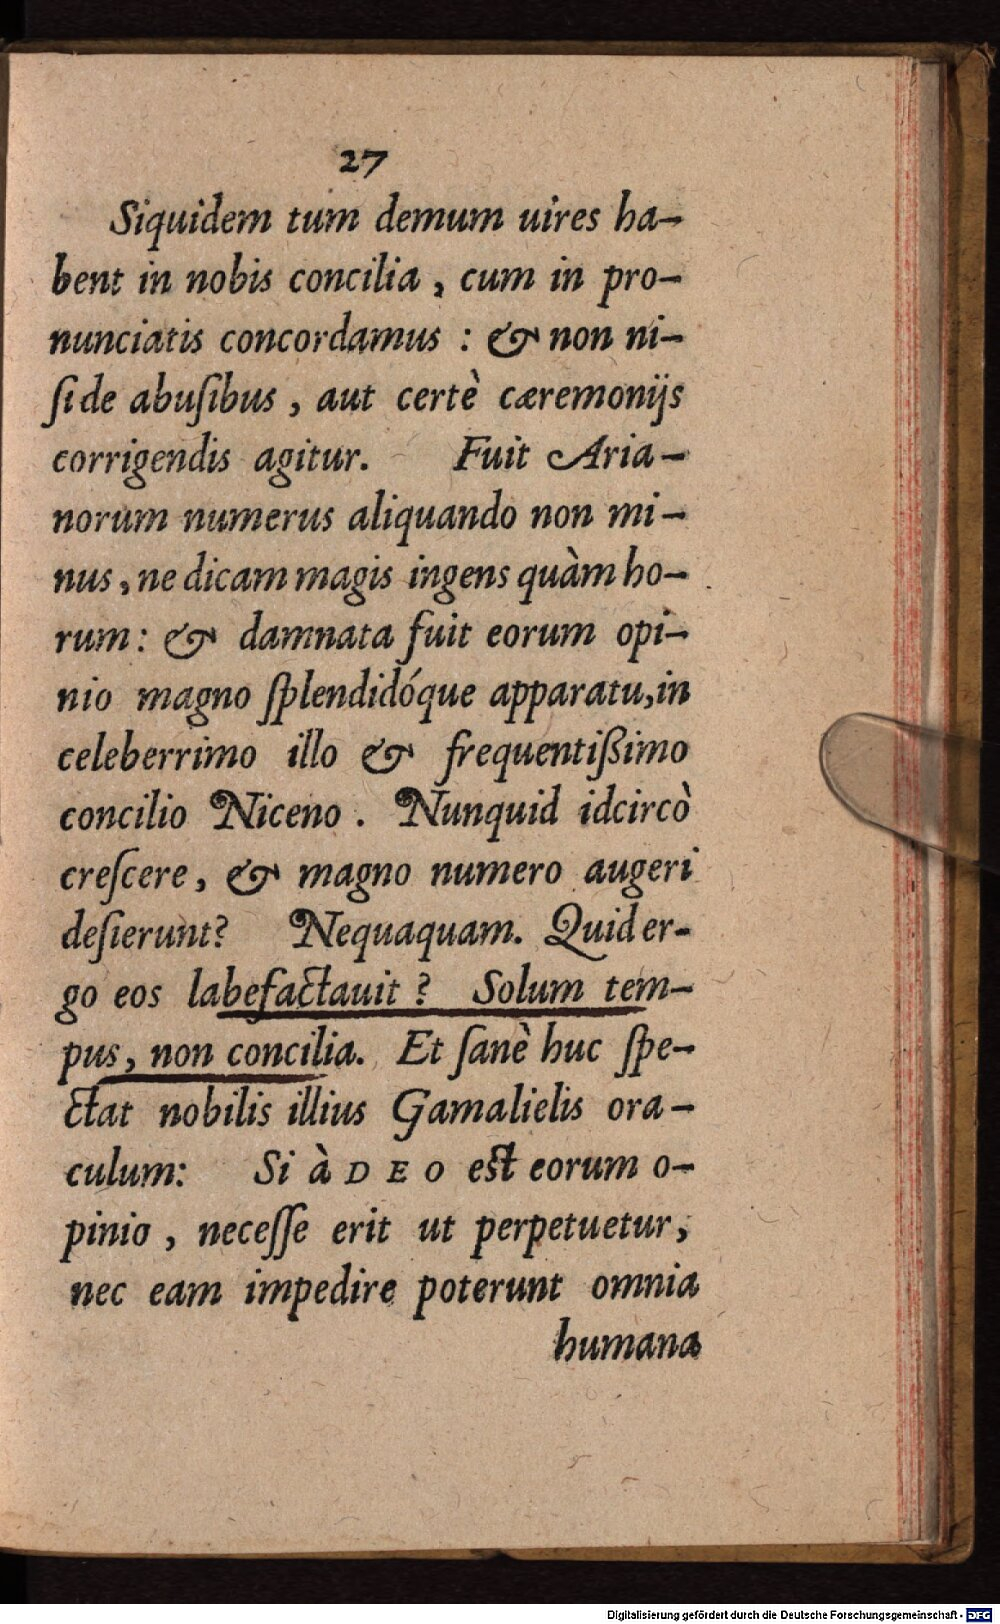 27
Siquidem tum demum uires ha-
bent in nobis concilia, cum in pro-
nunciatis concordamus : & non ni-
ſi de abuſibus, aut certè cæremonijs
corrigendis agitur. Fuit Aria-
norum numerus aliquando non mi-
nus, ne dicam magis ingens quàm ho-
rum: & damnata fuit eorum opi-
nio magno ſplendidóque apparatu, in
celeberrimo illo & frequentißimo
concilio Niceno. Nunquid idcircò
creſcere, & magno numero augeri
deſierunt? Nequaquam. Quid er-
go eos labefactauit? Solum tem-
pus, non concilia. Et ſanè huc ſpe-
ctat nobilis illius Gamalielis ora-
culum: Si à DEO est eorum o-
pinio, neceſſe erit ut perpetuetur,
nec eam impedire poterunt omnia
humana
Digitalisierung gefördert durch die Deutsche Forschungsgemeinschaft - DFG